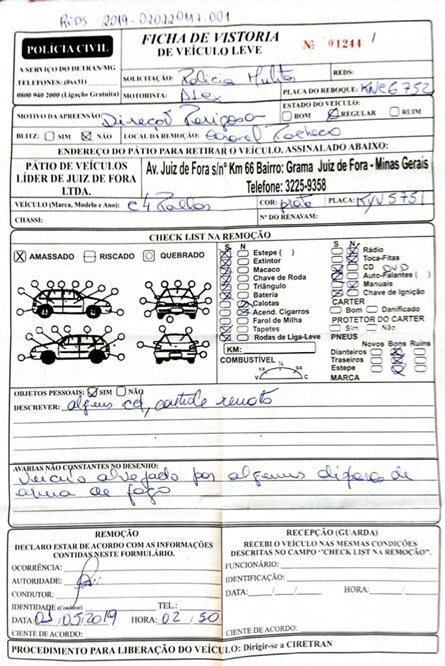 REDS 2019-020220117.001
POLÍCIA CIVIL
FICHA DE VISTORIA
DE VEÍCULO LEVE
Nº 01244 /
A SERVIÇO DO DETRAN/MG
TELEFONES: (0xx31)
0800 940 2000 (Ligação Gratuita)
SOLICITAÇÃO: Policia Militar REDS:
MOTORISTA: Alex PLACA DO REBOQUE: KNC6752
MOTIVO DA APREENSÃO: Direção Perigosa
ESTADO DO VEÍCULO:
BOM REGULAR RUIM
BLITZ: SIM NÃO LOCAL DA REMOÇÃO: Coronel Pacheco
ENDEREÇO DO PÁTIO PARA RETIRAR O VEÍCULO, ASSINALADO ABAIXO:
PÁTIO DE VEÍCULOS
LÍDER DE JUIZ DE FORA
LTDA.
Av. Juiz de Fora s/nº Km 66 Bairro: Grama Juiz de Fora - Minas Gerais
Telefone: 3225-9358
VEÍCULO (Marca, Modelo e Ano): C4 Pallas COR: prata PLACA: KYV5751
CHASSI: Nº DO RENAVAM:
CHECK LIST NA REMOÇÃO
X AMASSADO RISCADO QUEBRADO
S N
Estepe ( )
Extintor
Macaco
Chave de Roda
Triângulo
Bateria
Calotas
Acend. Cigarros
Farol de Milha
Tapetes
Rodas de Liga-Leve
KM:
COMBUSTÍVEL
V 1/4 3/4 C
S N
Rádio
Toca-Fitas
CD DVD
Auto-Falantes ( )
Manuais
Chave de Ignição
CARTER
Bom Danificado
PROTETOR DO CARTER
Sim Não
PNEUS
Novos Bons Ruins
Dianteiros
Traseiros
Estepe
MARCA
OBJETOS PESSOAIS: SIM NÃO
DESCREVER: alguns cd, controle remoto
AVARIAS NÃO CONSTANTES NO DESENHO:
Veiculo alvejado por alguns disparo de
arma de fogo
REMOÇÃO
DECLARO ESTAR DE ACORDO COM AS INFORMAÇÕES
CONTIDAS NESTE FORMULÁRIO.
OCORRÊNCIA:
AUTORIDADE:
CONDUTOR:
IDENTIDADE (Condutor) TEL.:
DATA: 01/05/2019 HORA: 02 50
CIENTE DE ACORDO:
RECEPÇÃO (GUARDA)
RECEBI O VEÍCULO NAS MESMAS CONDIÇÕES
DESCRITAS NO CAMPO "CHECK LIST NA REMOÇÃO".
FUNCIONÁRIO:
IDENTIFICAÇÃO:
DATA: / / HORA:
CIENTE DE ACORDO:
PROCEDIMENTO PARA LIBERAÇÃO DO VEÍCULO: Dirigir-se a CIRETRAN